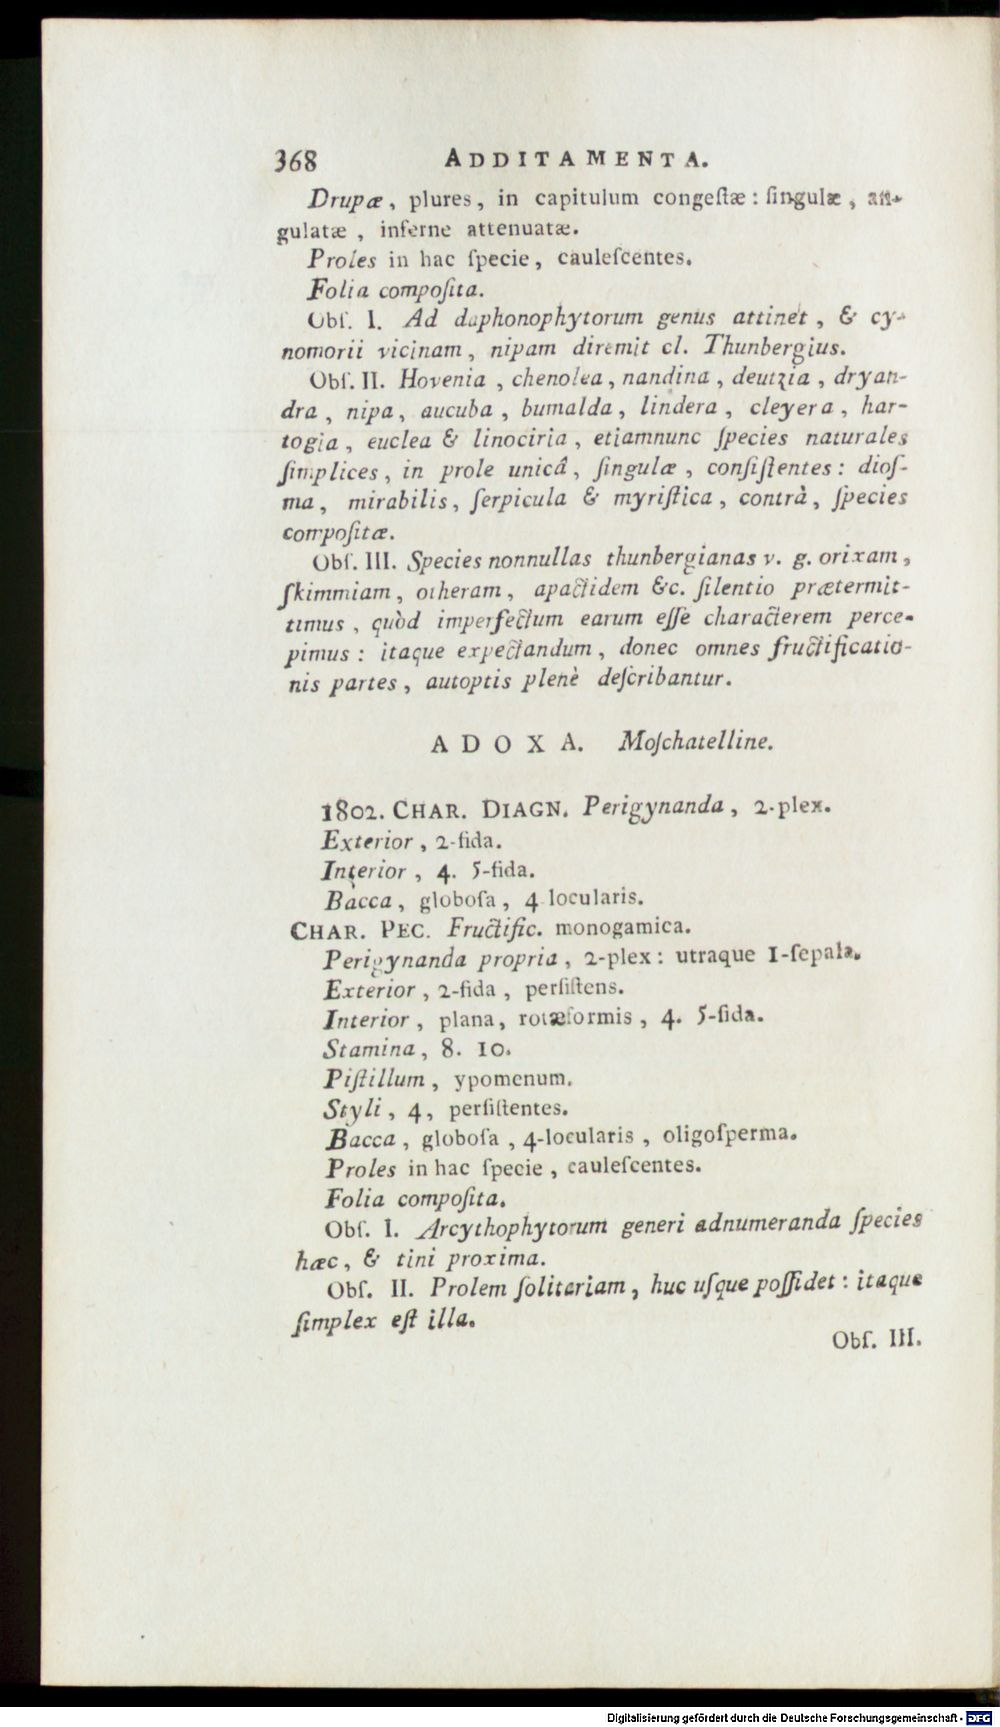 368 ADDITAMENTA.
Drupæ, plures, in capitulum congeſtæ : ſingulæ, an-
gulatæ, inferne attenuatæ.
Proles in hac ſpecie, cauleſcentes.
Folia compoſita.
Obſ. I. Ad daphonophytorum genus attinet, & cy-
nomorii vicinam, nipam diremit cl. Thunbergius.
Obſ. II. Hovenia, chenolea, nandina, deutzia, dryan-
dra, nipa, aucuba, bumalda, lindera, cleyera, har-
togia, euclea & linociria, etiamnunc ſpecies naturales
ſimplices, in prole unicâ, ſingulæ, conſiſtentes : dioſ-
ma, mirabilis, ſerpicula & myriſtica, contrà, ſpecies
compoſitæ.
Obſ. III. Species nonnullas thunbergianas v. g. orixam,
ſkimmiam, otheram, apactidem &c. ſilentio prætermit-
timus, quòd imperfectum earum eſſe characterem perce-
pimus : itaque expectandum, donec omnes fructificatio-
nis partes, autoptis plenè deſcribantur.
ADOXA. Moſchatelline.
1802. CHAR. DIAGN. Perigynanda, 2-plex.
Exterior, 2-fida.
Interior, 4. 5-fida.
Bacca, globoſa, 4 locularis.
CHAR. PEC. Fructific. monogamica.
Perigynanda propria, 2-plex : utraque 1-ſepala.
Exterior, 2-fida, perſiſtens.
Interior, plana, rotæformis, 4. 5-fida.
Stamina, 8. 10.
Piſtillum, ypomenum.
Styli, 4, perſiſtentes.
Bacca, globoſa, 4-locularis, oligoſperma.
Proles in hac ſpecie, cauleſcentes.
Folia compoſita.
Obſ. I. Arcythophytorum generi adnumeranda ſpecies
hæc, & tini proxima.
Obſ. II. Prolem ſolitariam, huc uſque poſſidet : itaque
ſimplex eſt illa.
Obſ. III.
Digitalisierung gefördert durch die Deutsche Forschungsgemeinschaft - DFG